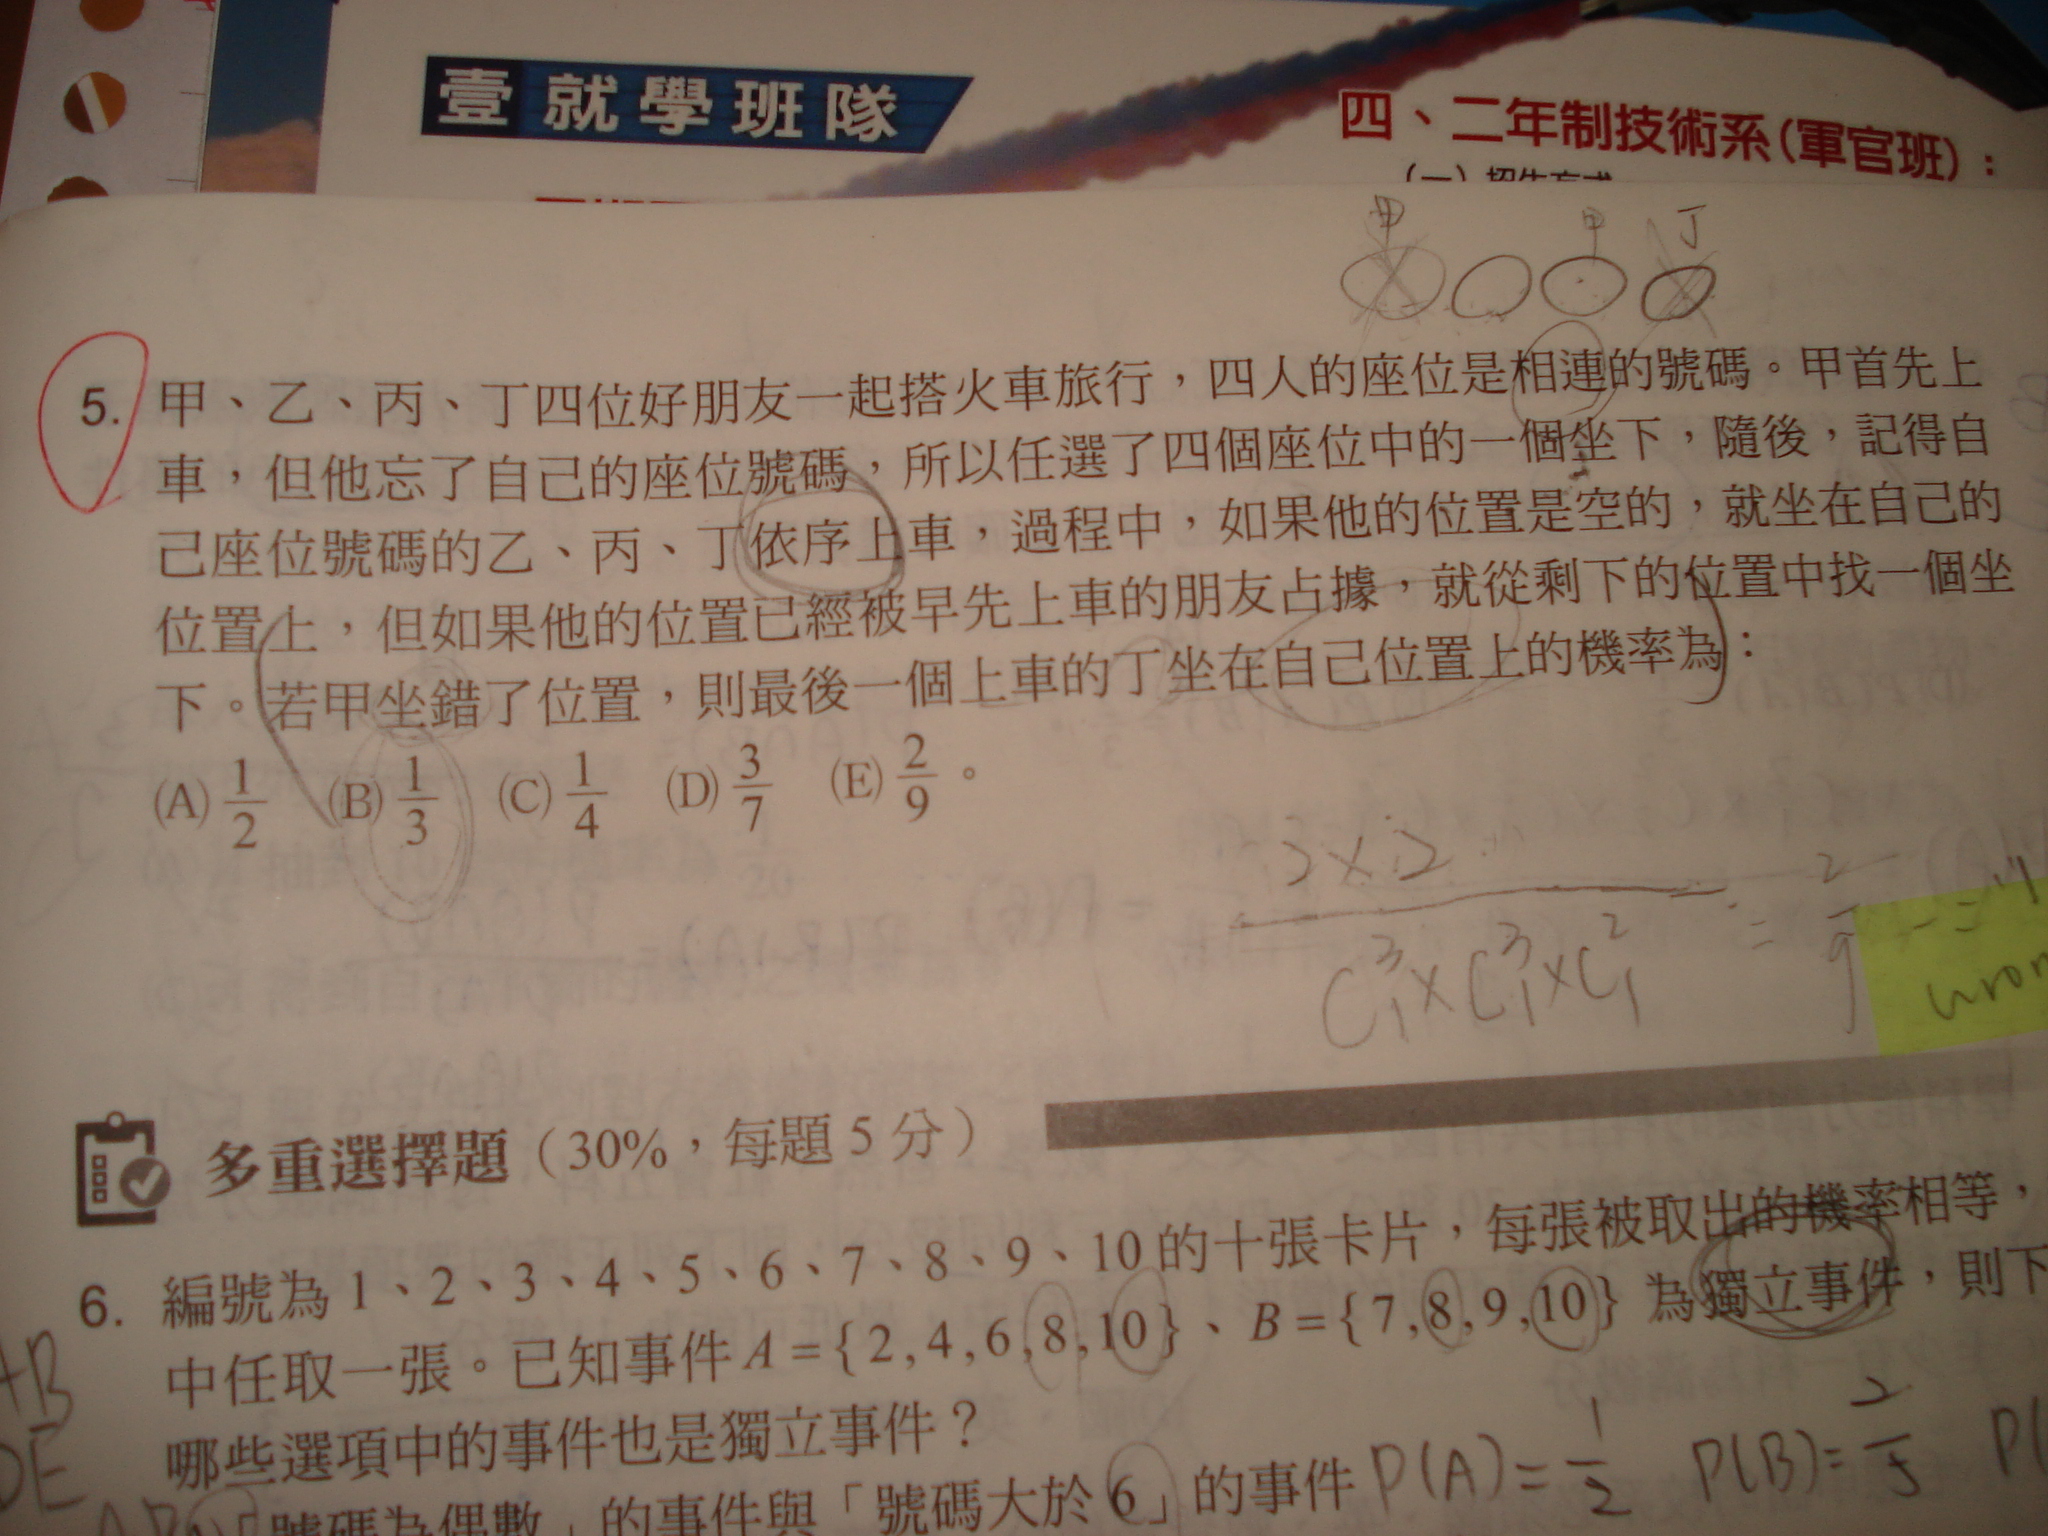 壹 就學班隊
四、二年制技術系(軍官班)：
甲 甲 丁
5. 甲、乙、丙、丁四位好朋友一起搭火車旅行，四人的座位是相連的號碼。甲首先上
車，但他忘了自己的座位號碼，所以任選了四個座位中的一個坐下，隨後，記得自
己座位號碼的乙、丙、丁依序上車，過程中，如果他的位置是空的，就坐在自己的
位置上，但如果他的位置已經被早先上車的朋友占據，就從剩下的位置中找一個坐
下。若甲坐錯了位置，則最後一個上車的丁坐在自己位置上的機率為：
(A) 1/2 (B) 1/3 (C) 1/4 (D) 3/7 (E) 2/9 。
多重選擇題（30%，每題 5 分）
6. 編號為 1、2、3、4、5、6、7、8、9、10 的十張卡片，每張被取出的機率相等，
中任取一張。已知事件 A = { 2 , 4 , 6 , 8 , 10 }、B = { 7 , 8 , 9 , 10 } 為獨立事件，則下
哪些選項中的事件也是獨立事件？
號碼為偶數」的事件與「號碼大於 6」的事件 P(A) = 1/2 P(B) = 2/5